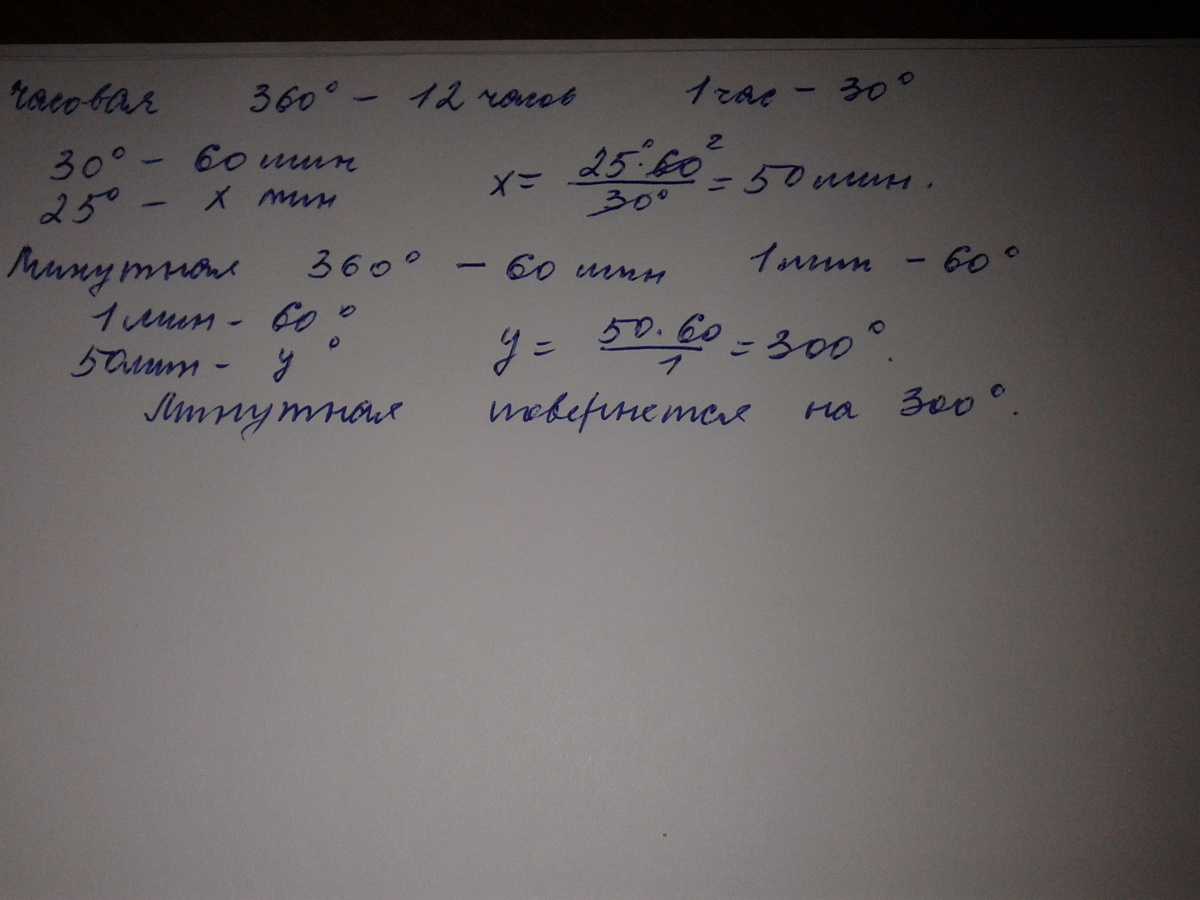 часовая 360° - 12 часов 1 час - 30°
30° - 60 мин
25° - x мин x = 25°·60 2 / 30° = 50 мин.
Минутная 360° - 60 мин 1 мин - 60°
1 мин - 60°
50 мин - y° y = 50·60 / 1 = 300°.
Минутная повернется на 300°.